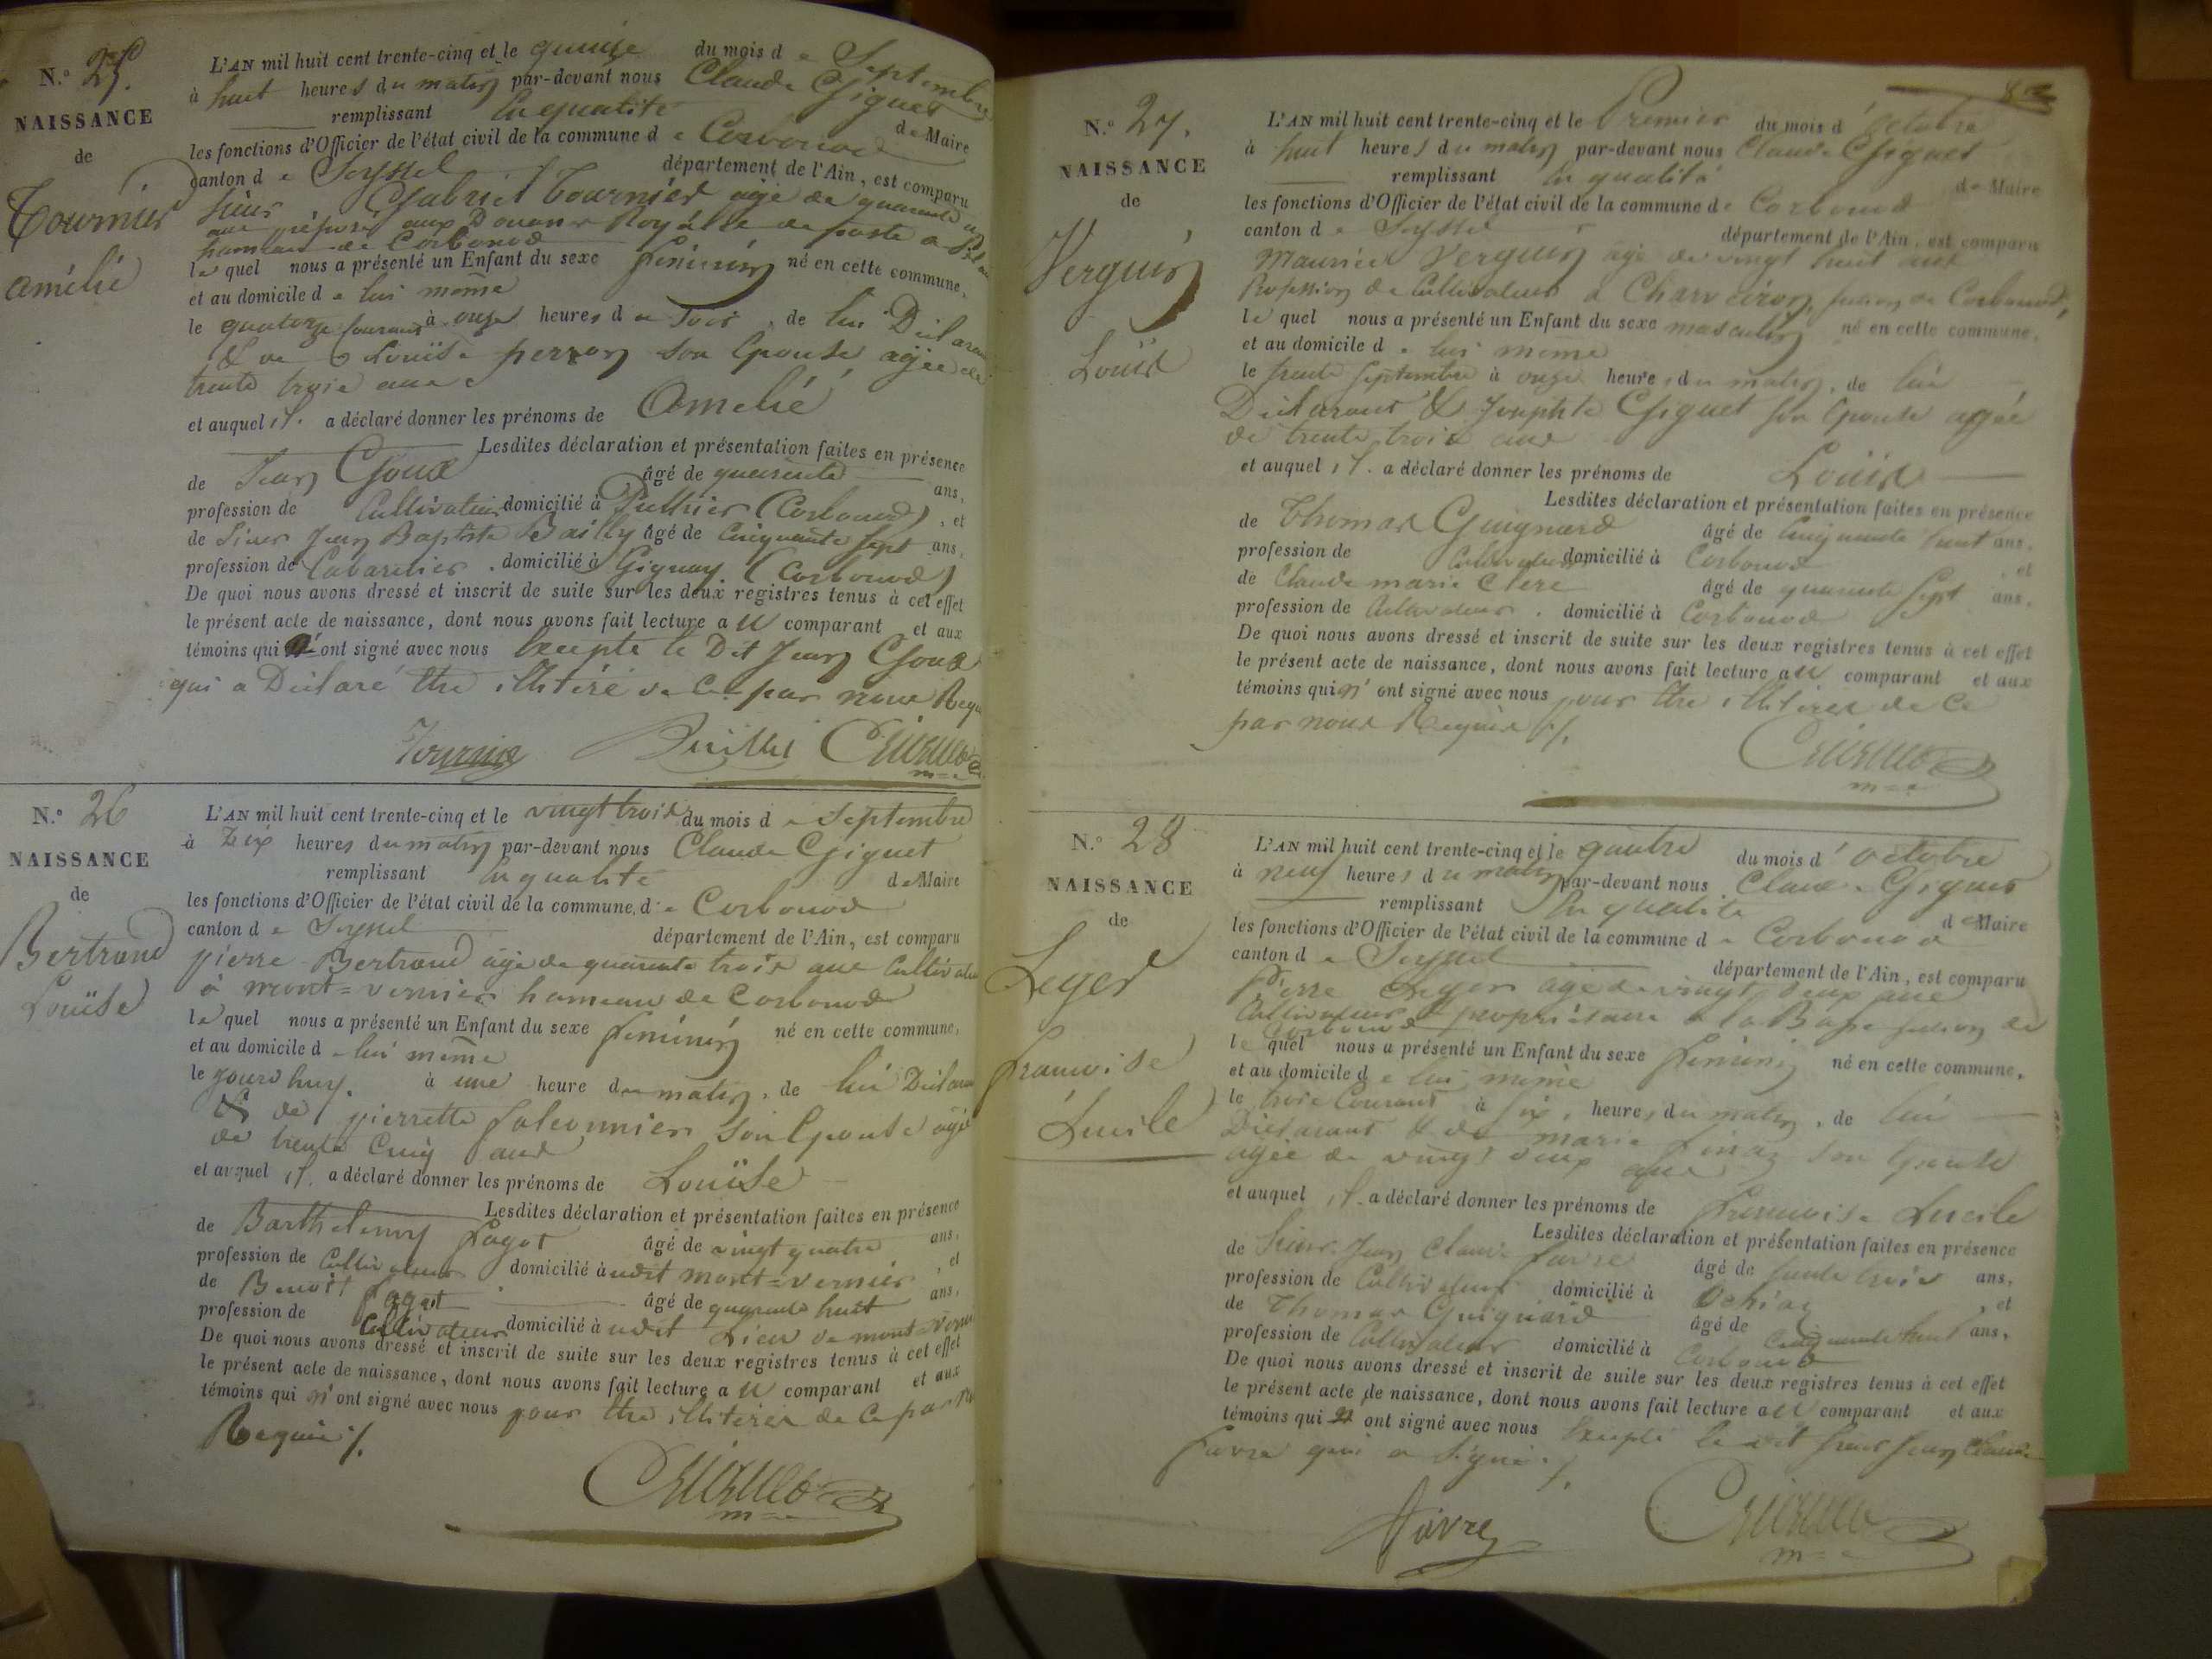 N.° 25.
NAISSANCE
de
Tournier
amélie
L'AN mil huit cent trente-cinq et le quinze du mois de Septembre
à huit heures du matin par-devant nous Claude Giguet
remplissant en qualité de Maire
les fonctions d'Officier de l'état civil de la commune de Corbonod
canton de Seyssel département de l'Ain, est comparu
sieur Gabriel Tournier agé de quarante
ans préposé aux Douanes Royalles de poste a
hameau de Corbonod
lequel nous a présenté un Enfant du sexe féminin né en cette commune,
et au domicile de lui même
le quatorze courant à onze heures du soir, de lui Déclarant
& de Louïse perron son épouse, agée de
trente trois ans
et auquel il a déclaré donner les prénoms de Amélie
Lesdites déclaration et présentation faites en présence
de Jean Goux âgé de quarante ans,
profession de Cultivateur domicilié à Puthier (Corbonod), et
de Sieur Jean Baptiste Bailly âgé de Cinquante sept ans,
profession de Cabaretier domicilié à Gignay (Corbonod)
De quoi nous avons dressé et inscrit de suite sur les deux registres tenus à cet effet
le présent acte de naissance, dont nous avons fait lecture au comparant et aux
témoins qui ont signé avec nous Excepté le Dit Jean Goux
qui a Déclaré être illitéré de Ce par nous Requi
Tournier
N.° 26
NAISSANCE
de
Bertrand
Louïse
L'AN mil huit cent trente-cinq et le vingt trois du mois de Septembre
à dix heures du matin par-devant nous Claude Giguet
remplissant en qualité de Maire
les fonctions d'Officier de l'état civil de la commune de Corbonod
canton de Seyssel département de l'Ain, est comparu
pierre Bertrand agé de quarante trois ans Cultivateur
à mont=vernier hameau de Corbonod
lequel nous a présenté un Enfant du sexe féminin né en cette commune,
et au domicile de lui même
le jourd'huy à une heure du matin, de lui Déclarant
& de pierrette falconnier son Epouse agée
de trente Cinq ans
et auquel il a déclaré donner les prénoms de Louïse
Lesdites déclaration et présentation faites en présence
de Barthelemy fagot âgé de vingt quatre ans,
profession de Cultivateur domicilié à udit mont=vernier, et
de Benoit fagot âgé de quarante huit ans,
profession de Cultivateur domicilié à udit Lieu de mont=vernier
De quoi nous avons dressé et inscrit de suite sur les deux registres tenus à cet effet
le présent acte de naissance, dont nous avons fait lecture au comparant et aux
témoins qui n'ont signé avec nous pour être illitérés de Ce par
Requis /.
N.° 27.
NAISSANCE
de
Verguin
Louis
L'AN mil huit cent trente-cinq et le Premier du mois d'octobre
à huit heures du matin par-devant nous Claude Giguet
remplissant en qualité de Maire
les fonctions d'Officier de l'état civil de la commune de Corbonod
canton de Seyssel département de l'Ain, est comparu
Maurice Verguin agé de vingt huit ans
Profession de Cultivateur a section de Corbonod,
lequel nous a présenté un Enfant du sexe masculin né en cette commune,
et au domicile de lui même
le trente Septembre à onze heures du matin, de lui
Déclarant & Josephte Giguet son Epouse agée
de trente trois ans
et auquel il a déclaré donner les prénoms de Louis
Lesdites déclaration et présentation faites en présence
de Thomas Guignard âgé de Cinquante huit ans,
profession de Cultivateur domicilié à Corbonod, et
de Claude marie Clerc âgé de quarante Sept ans,
profession de Cultivateur domicilié à Corbonod
De quoi nous avons dressé et inscrit de suite sur les deux registres tenus à cet effet
le présent acte de naissance, dont nous avons fait lecture au comparant et aux
témoins qui n'ont signé avec nous pour être illitérés de Ce
par nous Requis /.
N.° 28
NAISSANCE
de
Leger
francoise
Lucile
L'AN mil huit cent trente-cinq et le quatre du mois d'octobre
à neuf heures du matin par-devant nous Claude Giguet
remplissant en qualité de Maire
les fonctions d'Officier de l'état civil de la commune de Corbonod
canton de Seyssel département de l'Ain, est comparu
Pierre Leger agé de vingt deux ans
Cultivateur & propriétaire a la section de
Corbonod
lequel nous a présenté un Enfant du sexe féminin né en cette commune,
et au domicile de lui même
le trois Courant à six heures du matin, de lui
Déclarant & de marie finaz son Epouse
agée de vingt deux ans
et auquel il a déclaré donner les prénoms de francoise Lucile
Lesdites déclaration et présentation faites en présence
de Sieur Jean Claude favre âgé de trente trois ans,
profession de Cultivateur domicilié à, et
de Thomas Guignard âgé de Cinquante huit ans,
profession de Cultivateur domicilié à Corbonod
De quoi nous avons dressé et inscrit de suite sur les deux registres tenus à cet effet
le présent acte de naissance, dont nous avons fait lecture au comparant et aux
témoins qui n'ont signé avec nous Excepté le dit sieur Jean Claude
favre qui a signé /.
favre